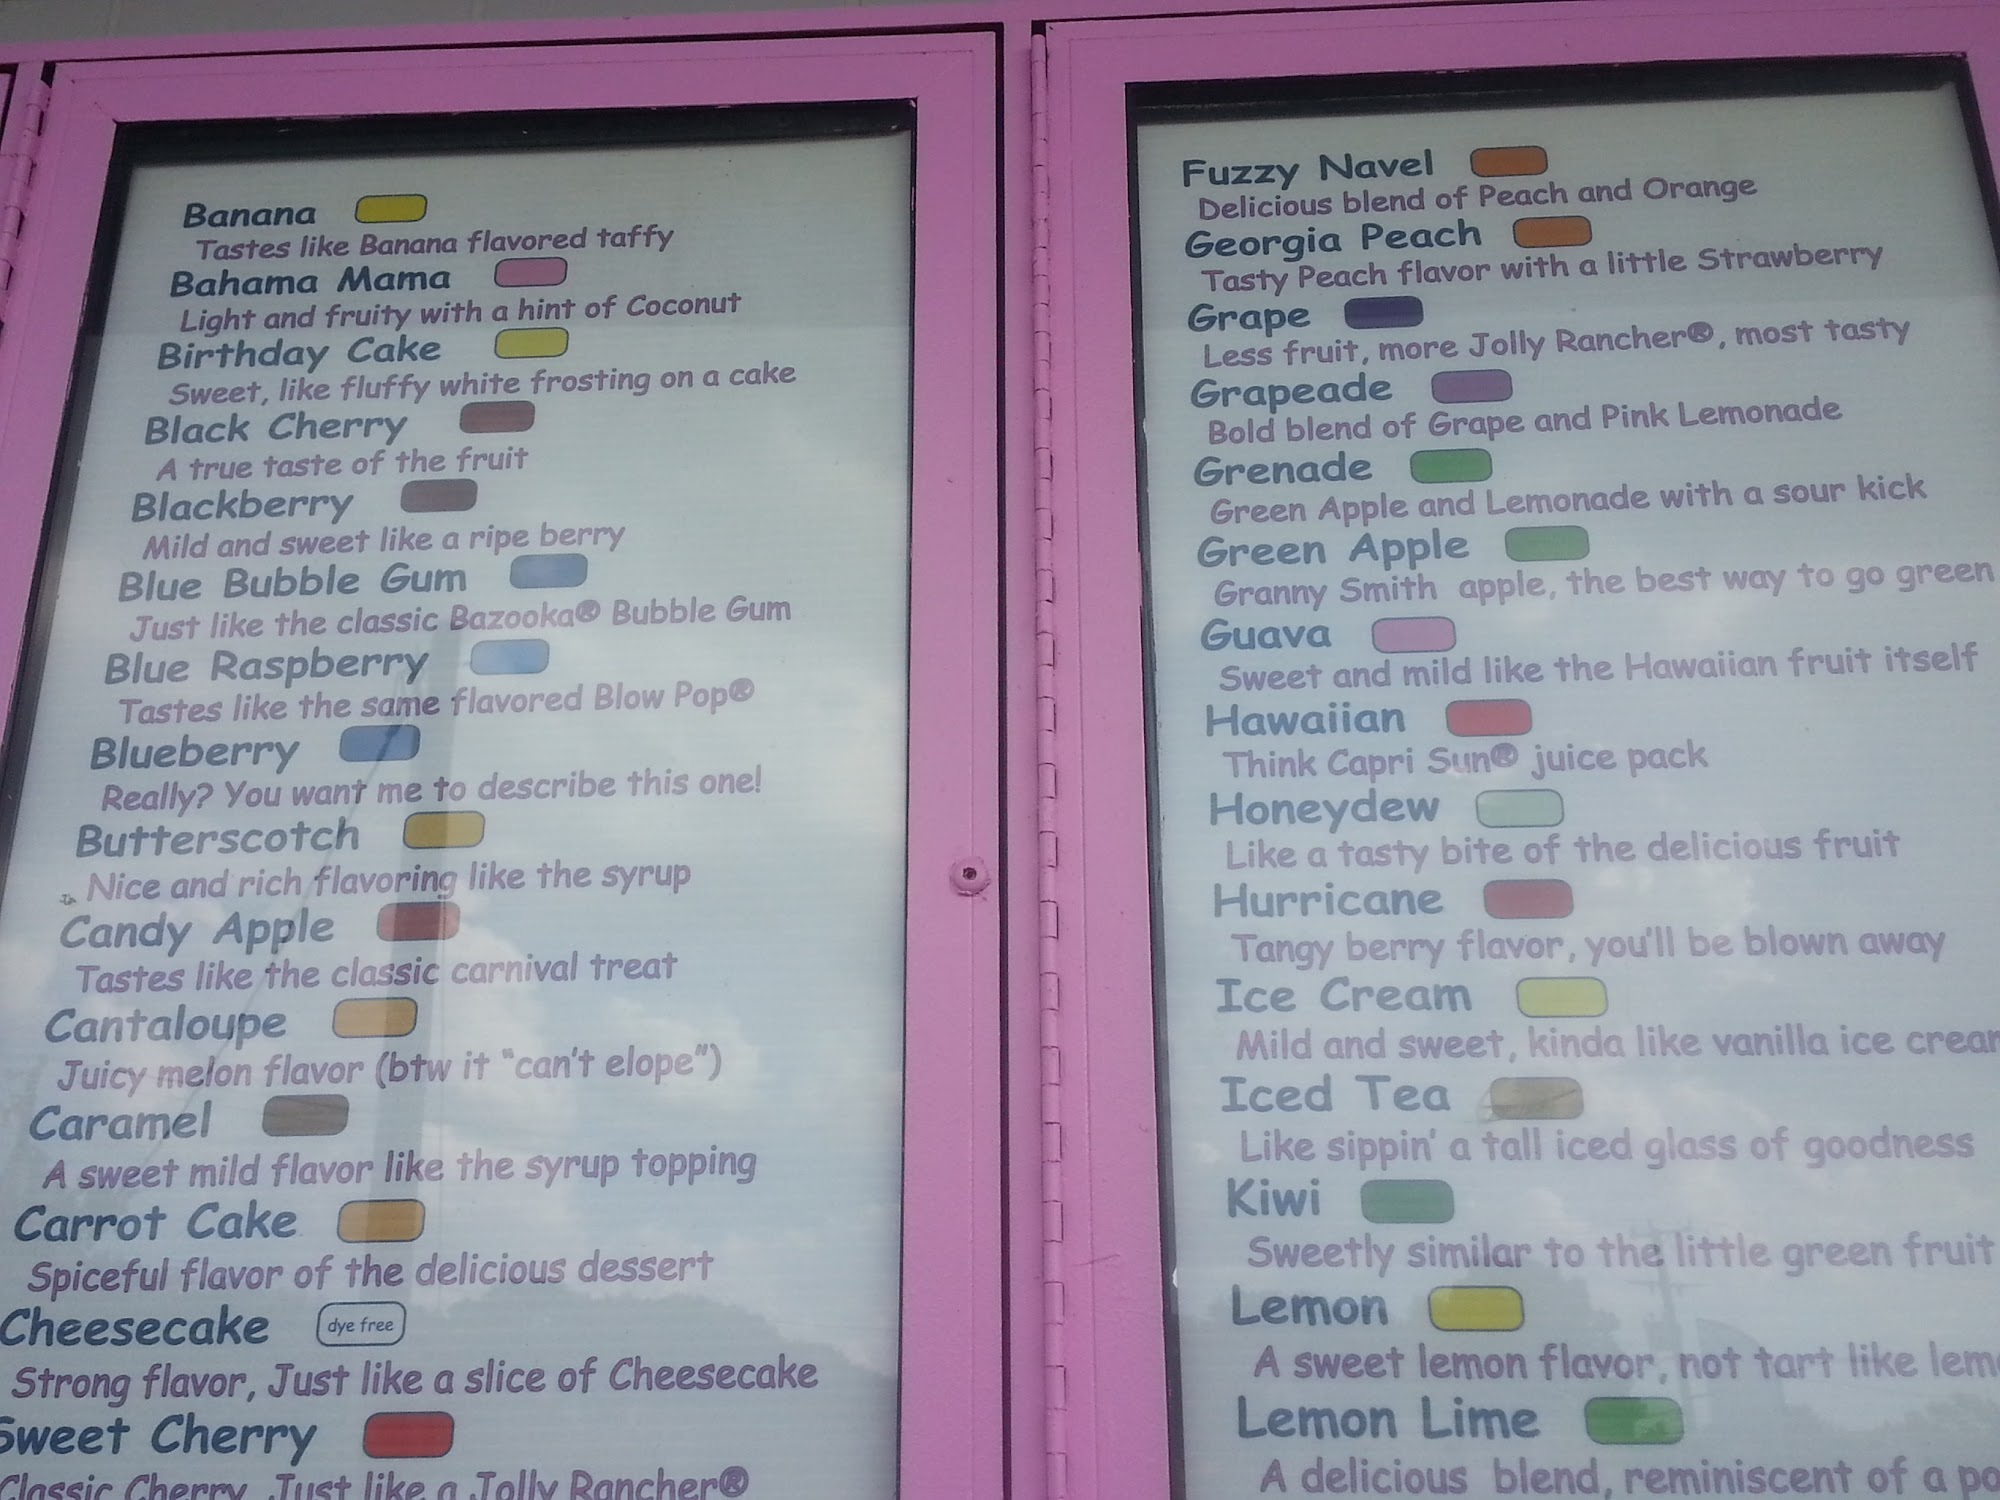 Banana
Tastes like Banana flavored taffy
Bahama Mama
Light and fruity with a hint of Coconut
Birthday Cake
Sweet, like fluffy white frosting on a cake
Black Cherry
A true taste of the fruit
Blackberry
Mild and sweet like a ripe berry
Blue Bubble Gum
Just like the classic Bazooka® Bubble Gum
Blue Raspberry
Tastes like the same flavored Blow Pop®
Blueberry
Really? You want me to describe this one!
Butterscotch
Nice and rich flavoring like the syrup
Candy Apple
Tastes like the classic carnival treat
Cantaloupe
Juicy melon flavor (btw it "can't elope")
Caramel
A sweet mild flavor like the syrup topping
Carrot Cake
Spiceful flavor of the delicious dessert
Cheesecake dye free
Strong flavor, Just like a slice of Cheesecake
Sweet Cherry
Classic Cherry, Just like a Jolly Rancher®
Fuzzy Navel
Delicious blend of Peach and Orange
Georgia Peach
Tasty Peach flavor with a little Strawberry
Grape
Less fruit, more Jolly Rancher®, most tasty
Grapeade
Bold blend of Grape and Pink Lemonade
Grenade
Green Apple and Lemonade with a sour kick
Green Apple
Granny Smith apple, the best way to go green
Guava
Sweet and mild like the Hawaiian fruit itself
Hawaiian
Think Capri Sun® juice pack
Honeydew
Like a tasty bite of the delicious fruit
Hurricane
Tangy berry flavor, you'll be blown away
Ice Cream
Mild and sweet, kinda like vanilla ice cream
Iced Tea
Like sippin' a tall iced glass of goodness
Kiwi
Sweetly similar to the little green fruit
Lemon
A sweet lemon flavor, not tart like
Lemon Lime
A delicious blend, reminiscent of a